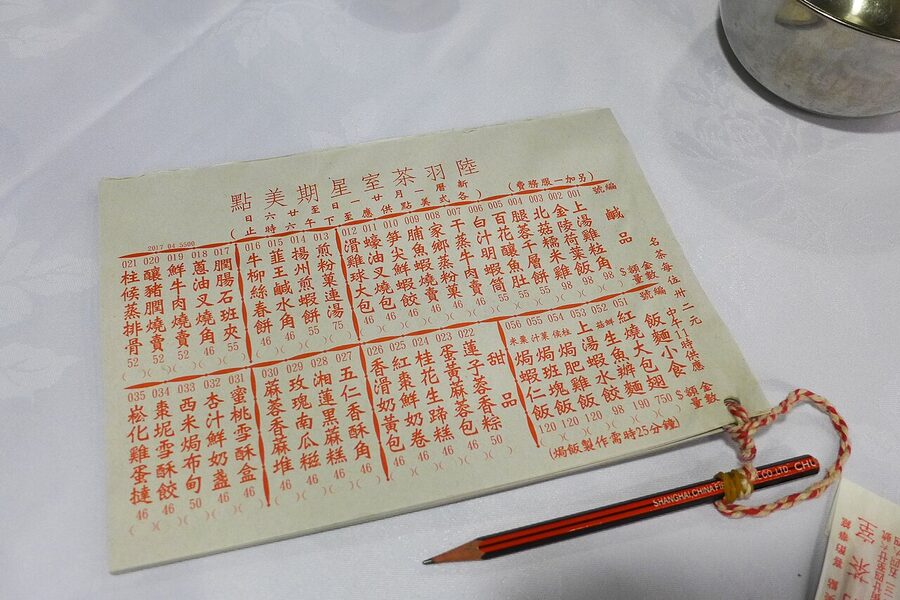 陸羽茶室星期美點
新曆一月廿一日至廿六日
各式美點供應至下午六時止
(另加一服務費)
2017 04 5500
編號 鹹品 金額 $ 數量
001 上湯雞粒角 98
002 金陵荷葉飯 98
003 北菇糯米雞 98
004 腿茸千層餅 55
005 百花釀魚肚 55
006 白汁明蝦筒 55
007 干蒸牛肉賣 46
008 家鄉蒸粉菓 46
009 脯魚蝦燒賣 46
010 筍尖鮮蝦餃 46
011 蠔油叉燒包 46
012 滑雞球大包 46
013 煎粉菓連湯 75
014 揚州煎蝦餅 55
015 韮王鹹水角 46
016 牛柳絲春餅 46
017 膶腸石班夾 55
018 蔥油叉燒角 46
019 鮮牛肉燒賣 52
020 釀豬膶燒賣 52
021 桂候蒸排骨 52
名茶每位卅二元
中午11時供應
編號 飯麵小食 金額 $ 數量
051 紅燒大包翅 750
052 鮮菇生魚辦麵 190
053 上湯蝦水餃 98
054 桂侯焗肥雞飯 120
055 菓汁焗班塊飯 120
056 粟米焗蝦仁飯 120
(焗飯製作需時25分鐘)
甜品
022 蓮子蓉香粽 50
023 蛋黃蔴蓉包 46
024 桂花生蹄糕 46
025 紅棗鮮奶卷 46
026 香滑奶黃包 46
027 五仁香酥角 46
028 湘蓮黑蔴糕 46
029 玫瑰南瓜糍 46
030 蔴蓉香蔴堆 46
031 蜜桃雪酥盒 46
032 杏汁鮮奶盞 46
033 西米焗布甸 50
034 棗坭雪酥餃 46
035 崧化雞蛋撻 46
SHANGHAI,CHINA CO. LTD. CHI
茶室